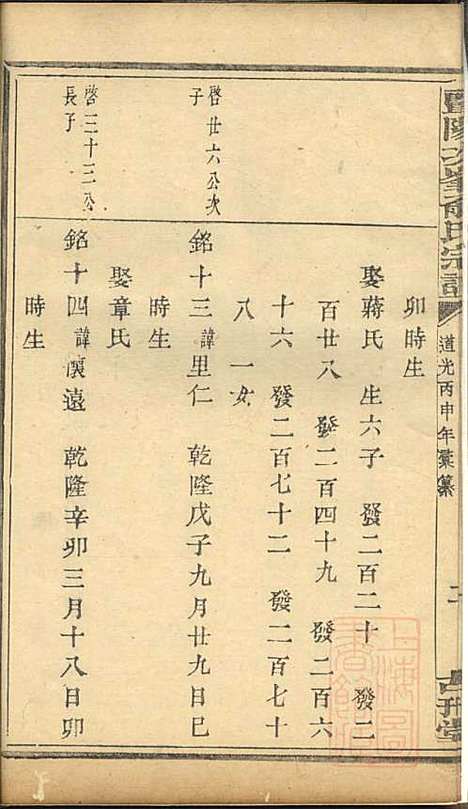 暨陽次峯俞氏宗譜
道光丙申年彙纂
卯時生
娶蔣氏 生六子 發二百二十 發二
百廿八 發二百四十九 發二百六
十六 發二百七十二 發二百七十
八 一女
啓廿六公次
子
銘十三 諱里仁 乾隆戊子九月廿九日巳
時生
娶章氏
啓三十三公
長子
銘十四 諱懷遠 乾隆辛卯三月十八日卯
時生